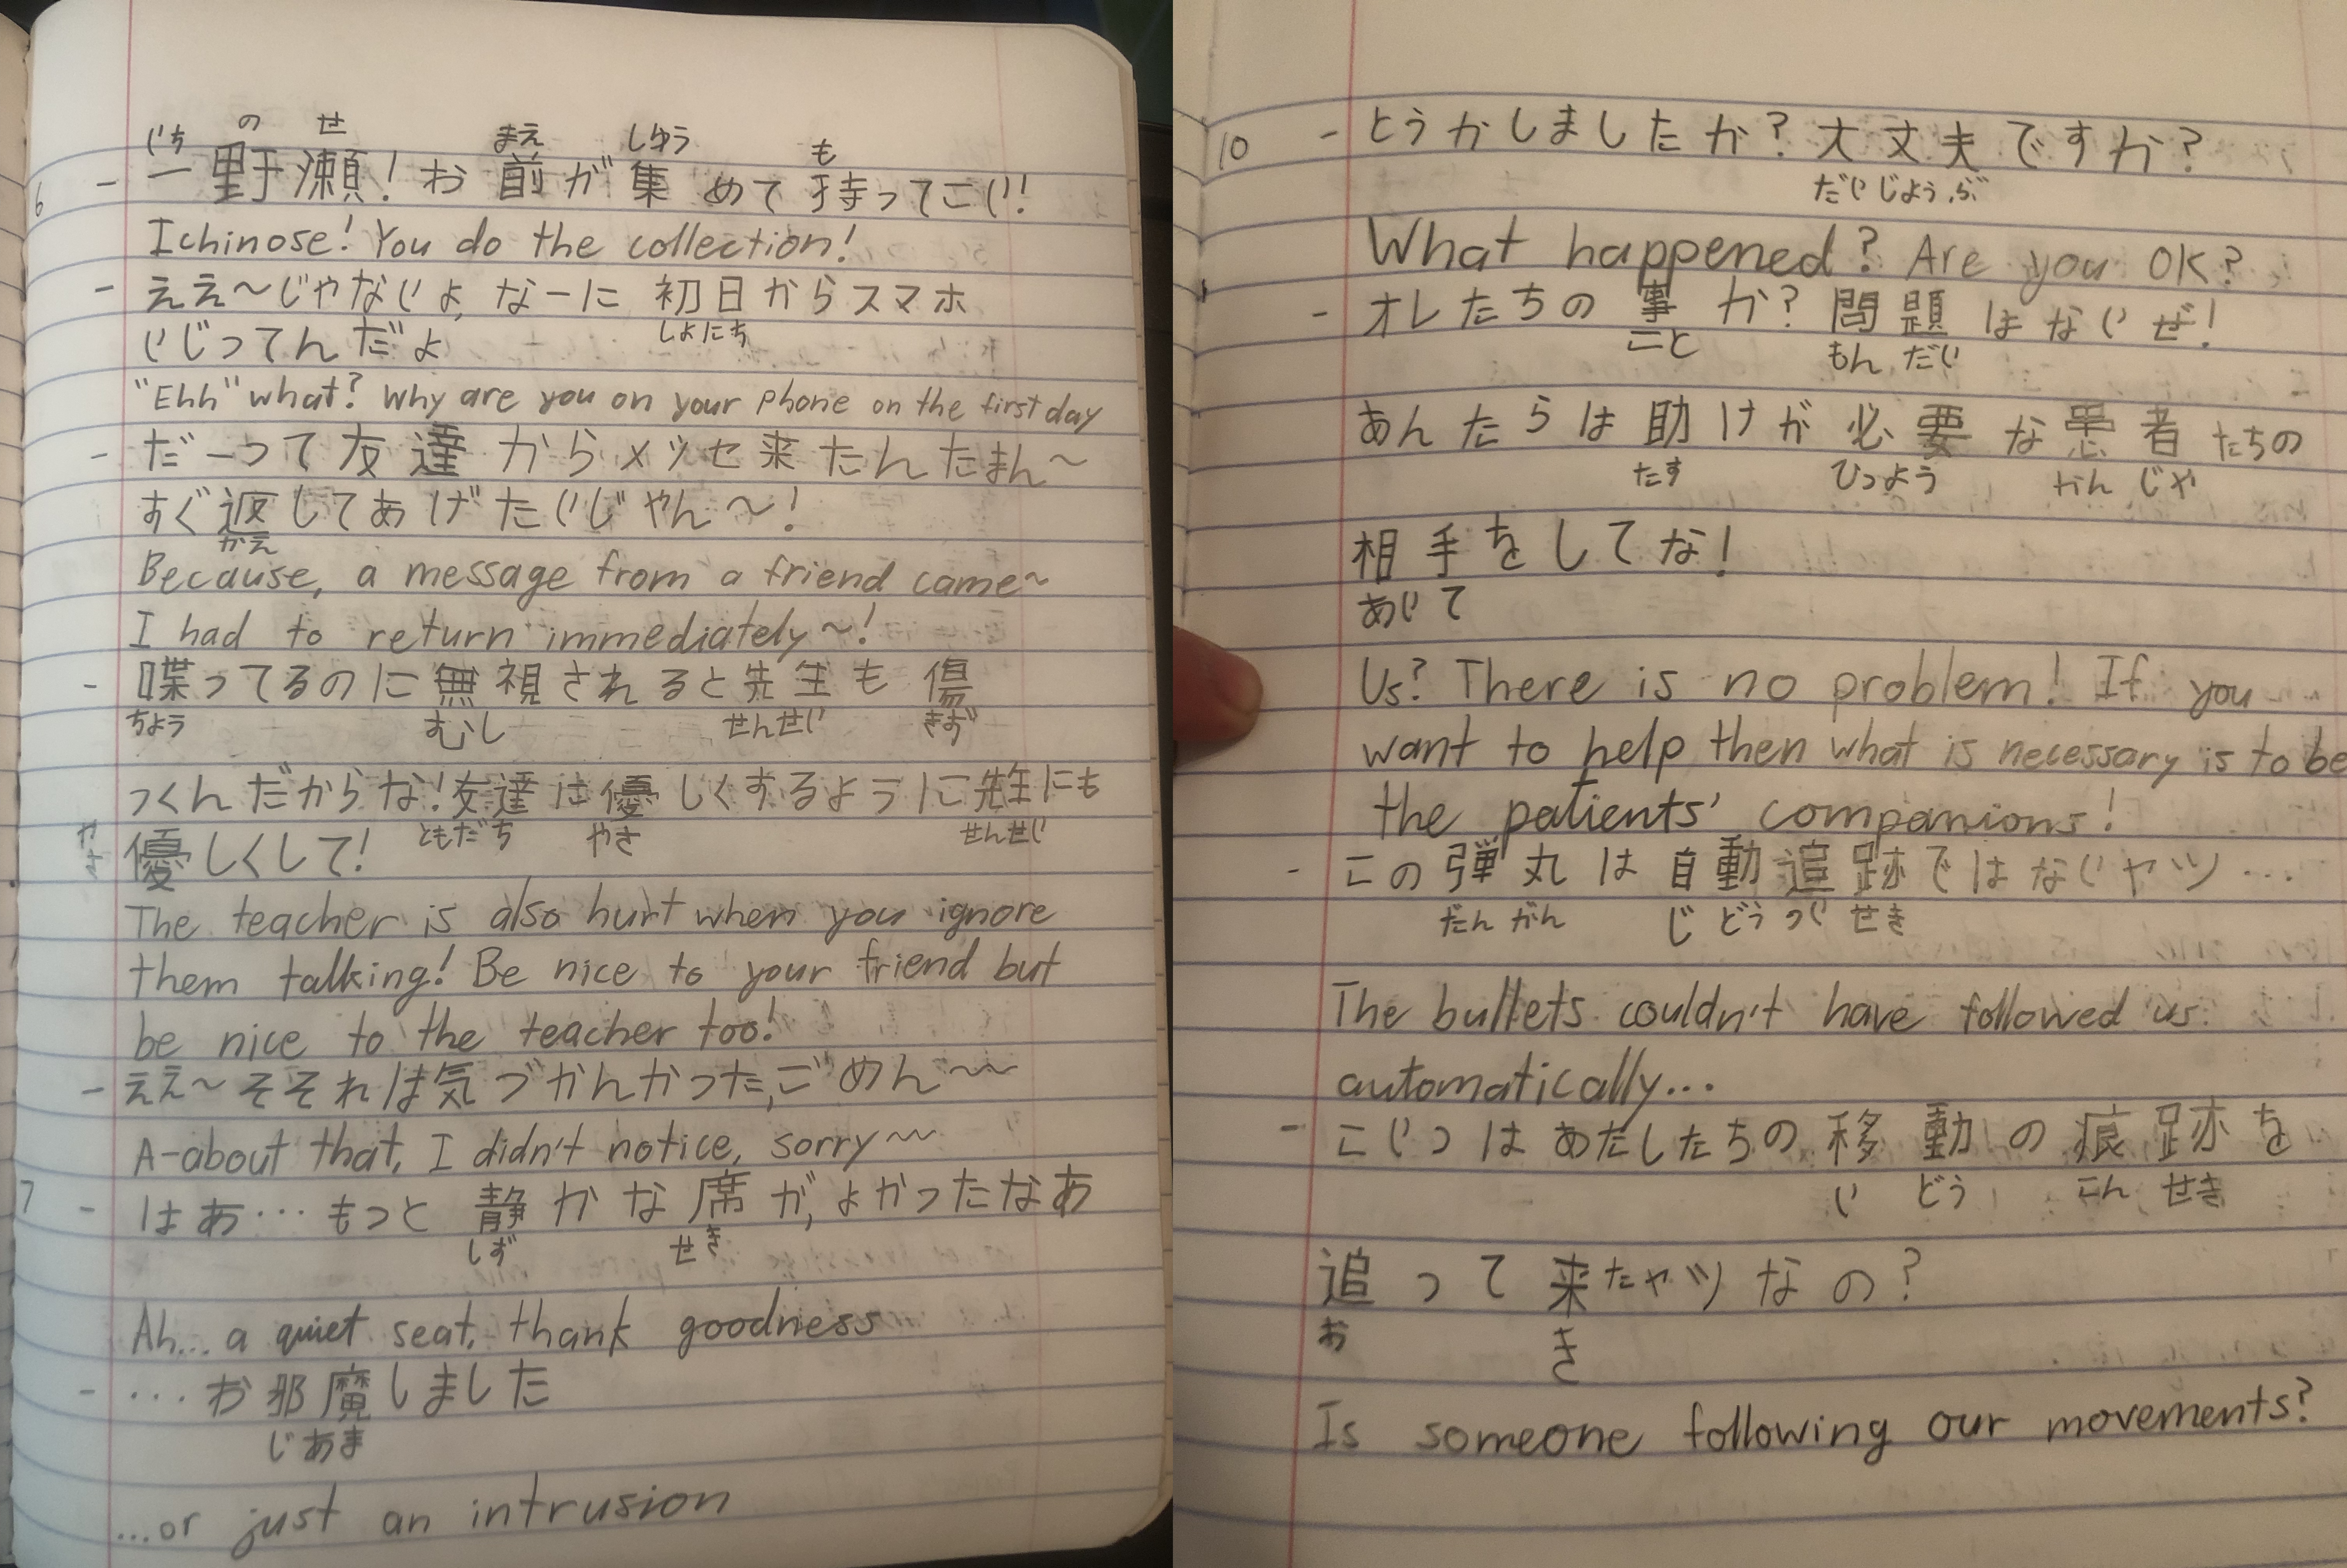 いち の せ まえ しゅう も
6 - 一野瀬!お前が集めて持ってこい!
Ichinose! You do the collection!
- ええ~じゃないよ, なーに初日からスマホ
しょにち
いじってんだよ
"Ehh" what? Why are you on your phone on the first day
- だーって友達からメッセ来たんたまん~
すぐ返してあげたいじゃん~!
かえ
Because, a message from a friend came~
I had to return immediately~!
- 喋ってるのに無視されると先生も傷
ちょう むし せんせい きず
つくんだからな!友達は優しくするように先生にも
ともだち やさ せんせい
やさ
優しくして!
The teacher is also hurt when you ignore
them talking! Be nice to your friend but
be nice to the teacher too!
- ええ~そそれは気づかんかった,ごめん~~
A-about that, I didn't notice, sorry~~
7 - はあ... もっと静かな席が,よかったなあ
しず せき
Ah... a quiet seat, thank goodness
- ...お邪魔しました
じあま
...or just an intrusion
10 - とうかしましたか?大丈夫ですか?
だいじょうぶ
What happened? Are you OK?
- オレたちの事か?問題はないぜ!
こと もんだい
あんたらは助けが必要な患者たちの
たす ひつよう かんじゃ
相手をしてな!
あいて
Us? There is no problem! If you
want to help then what is necessary is to be
the patients' companions!
- この弾丸は自動追跡ではないヤツ...
だんがん じどうついせき
The bullets couldn't have followed us
automatically...
- こいつはあたしたちの移動の痕跡を
い どう こん せき
追って来たヤツなの?
お き
Is someone following our movements?